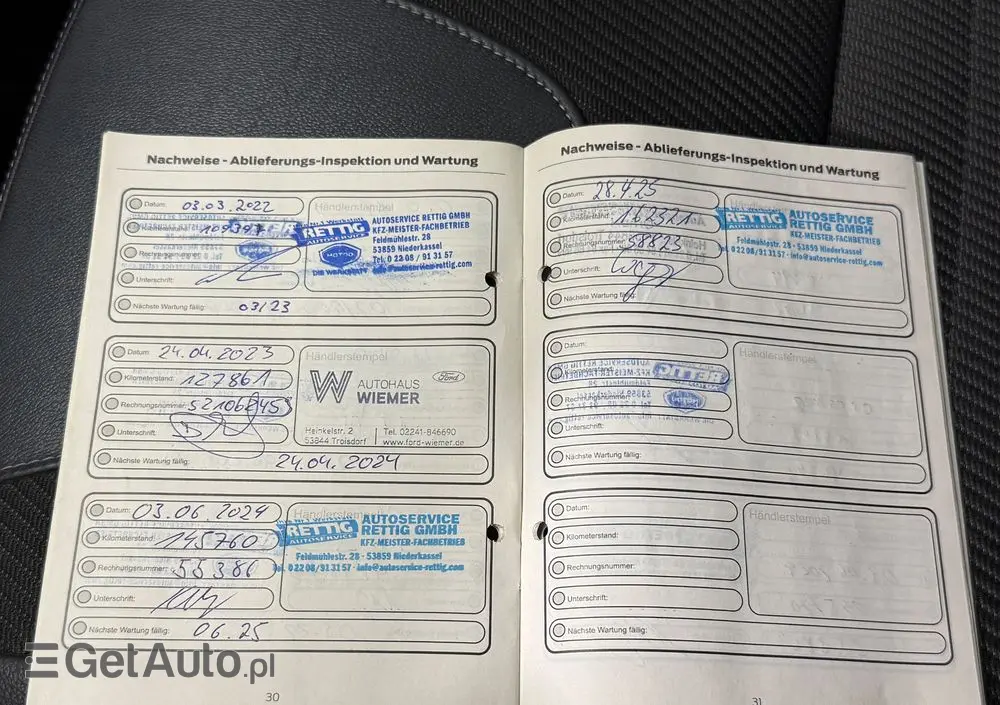 Nachweise - Ablieferungs-Inspektion und Wartung
Datum: 03.03.2022
Händlerstempel
109397
Rechnungsnummer:
Unterschrift:
RETTIG
AUTOSERVICE
MOTOO
DIE WERKSTATT
AUTOSERVICE RETTIG GMBH
KFZ-MEISTER-FACHBETRIEB
Feldmühlestr. 28
53859 Niederkassel
Tel. 0 22 08 / 91 31 57
info@autoservice-rettig.com
Nächste Wartung fällig: 03/23
Datum: 24.04.2023
Kilometerstand: 127861
Rechnungsnummer:
Unterschrift:
Händlerstempel
W AUTOHAUS
WIEMER
Ford
Heinkelstr. 2
53844 Troisdorf
Tel. 02241-846690
www.ford-wiemer.de
Nächste Wartung fällig: 24.04.2024
Datum: 03.06.2024
Kilometerstand: 145760
Rechnungsnummer: 55386
Unterschrift:
Händlerstempel
RETTIG
AUTOSERVICE
AUTOSERVICE
RETTIG GMBH
KFZ-MEISTER-FACHBETRIEB
Feldmühlestr. 28 - 53859 Niederkassel
Tel. 0 22 08/91 31 57 · info@autoservice-rettig.com
Nächste Wartung fällig: 06.25
30
Nachweise - Ablieferungs-Inspektion und Wartung
Datum: 28.4.25
Kilometerstand: 162321
Rechnungsnummer: 58823
Unterschrift:
Händlerstempel
RETTIG
AUTOSERVICE
AUTOSERVICE
RETTIG GMBH
KFZ-MEISTER-FACHBETRIEB
Feldmühlestr. 28 - 53859 Niederkassel
Tel. 0 22 08/91 31 57 · info@autoservice-rettig.com
Nächste Wartung fällig:
Datum:
Rechnungsnummer:
Unterschrift:
Händlerstempel
Nächste Wartung fällig:
Datum:
Kilometerstand:
Rechnungsnummer:
Unterschrift:
Händlerstempel
Nächste Wartung fällig:
31
GetAuto.pl